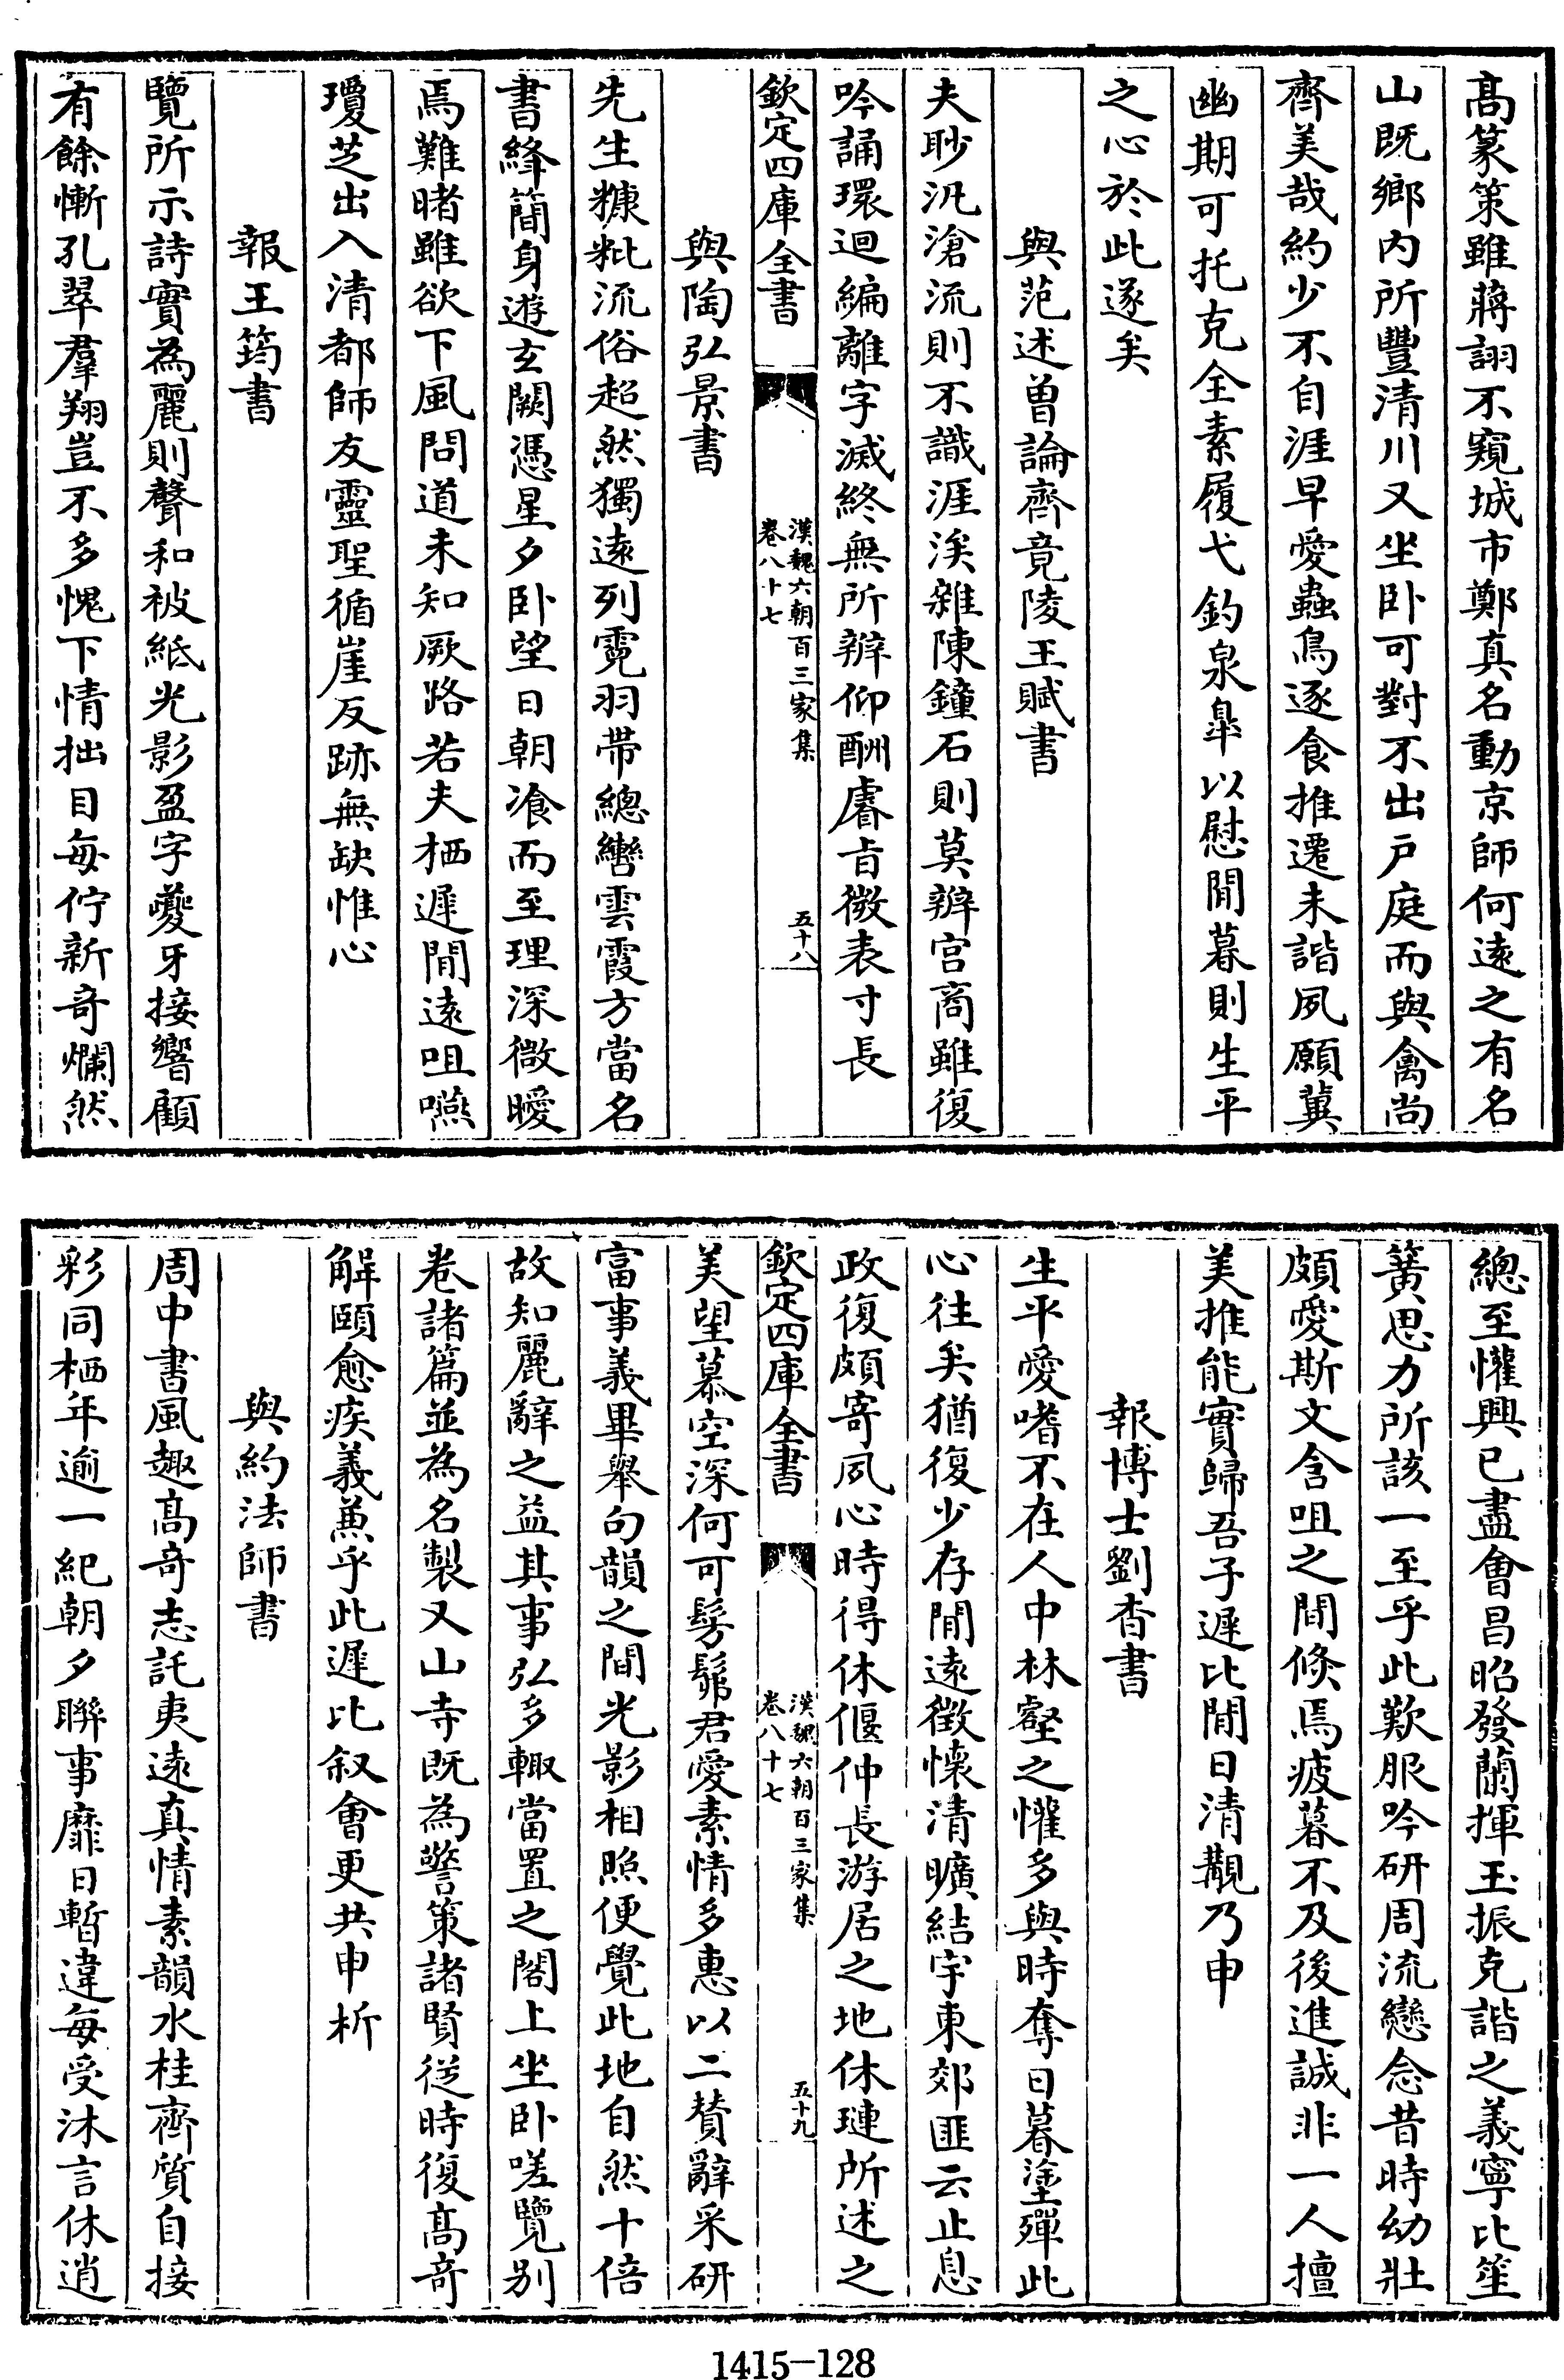 髙篆策雖蔣詡不窺城市鄭真名動京師何遠之有名
山既鄉内所豐清川又坐卧可對不出戸庭而與禽尚
齊美哉約少不自涯早愛蟲鳥逐食推遷未諧夙願冀
幽期可托克全素履弋釣泉臯以慰閒暮則生平
之心於此遂矣
與范述曽論齊竟陵王賦書
夫眇汎滄流則不識涯涘雜陳鐘石則莫辨宫商雖復
吟誦環迴編離字滅終無所辨仰酬睿㫖微表寸長
欽定四庫全書
漢魏六朝百三家集
卷八十七
五十八
與陶弘景書
先生糠粃流俗超然獨遠列霓羽帶總轡雲霞方當名
書絳簡身遊玄闕憑星夕卧望日朝飡而至理深微曖
焉難睹雖欲下風問道未知厥路若夫栖遲閒遠咀嚥
瓊芝出入清都師友靈聖循崖反跡無缺惟心
報王筠書
覽所示詩實為麗則聲和被紙光影盈字夔牙接響顧
有餘慚孔翠羣翔豈不多愧下情拙目每佇新奇爛然
總至懽興已盡會昌昭發蘭揮玉振克諧之義寧比笙
簧思力所該一至乎此歎服吟研周流戀念昔時幼壯
頗愛斯文含咀之間倐焉疲暮不及後進誠非一人擅
美推能實歸吾子遲比閒日清覯乃申
報博士劉杳書
生平愛嗜不在人中林壑之懽多與時奪日暮塗殫此
心往矣猶復少存閒遠徴懷清曠結宇東郊匪云止息
政復頗寄夙心時得休偃仲長游居之地休璉所述之
欽定四庫全書
漢魏六朝百三家集
卷八十七
五十九
美望慕空深何可髣髴君愛素情多惠以二賛辭采研
富事義畢舉句韻之間光影相照便覺此地自然十倍
故知麗辭之益其事弘多輙當置之閣上坐卧嗟覽别
卷諸篇並為名製又山寺既為警策諸賢從時復髙竒
解頤愈疾義兼乎此遲比叙會更共申析
與約法師書
周中書風趣髙奇志託夷遠真情素韻水桂齊質自接
彩同栖年逾一紀朝夕聯事靡日暫違每受沐言休逍
1415—128